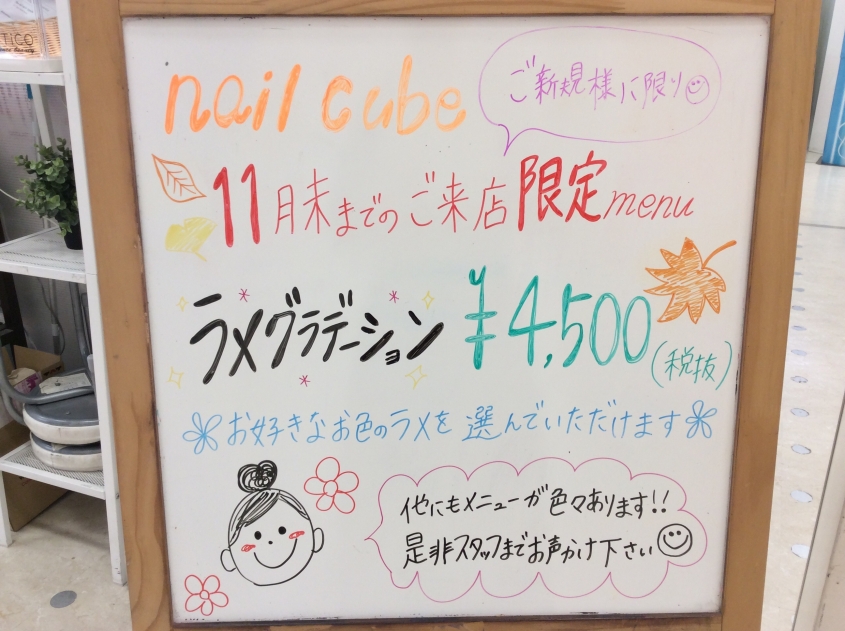 TiCO
nail cube
ご新規様に限り
11月末までのご来店限定menu
ラメグラデーション ¥4,500(税抜)
お好きなお色のラメを選んでいただけます
他にもメニューが色々あります!!
是非スタッフまでお声かけ下さい